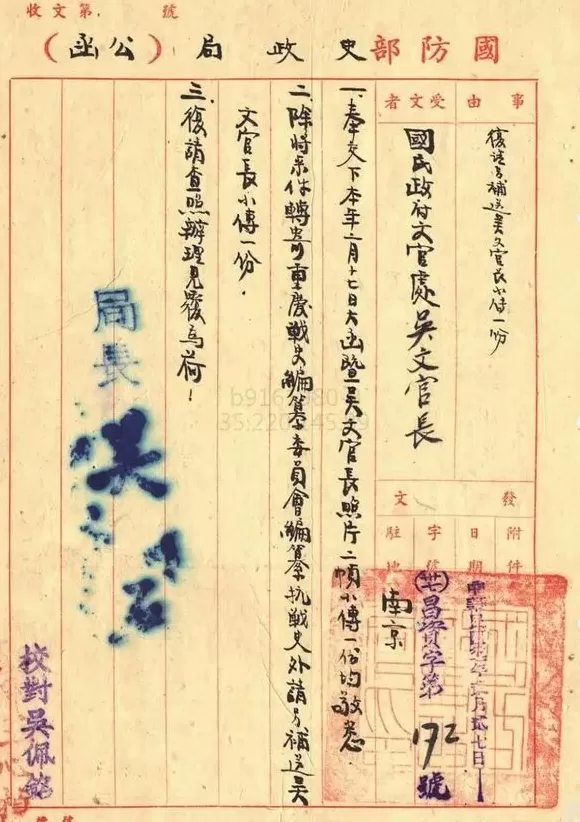 收文 第 號
國防部史政局(公函)
事由
復請另補送吳文官長小傳一份
受文者
國民政府文官處吳文官長
發文
附件
日期
中華民國 年 月 七日
字號
昌實字第172號
駐地
南京
一、奉交下本年二月十七日大函暨吳文官長照片二幀小傳一份均敬悉
二、除將來件轉寄重慶戰史編纂委員會編纂抗戰史外請另補送吳
文官長小傳一份.
三、復請查照辦理見覆為荷!
局長
吳石
校對吳佩
b916
35:220